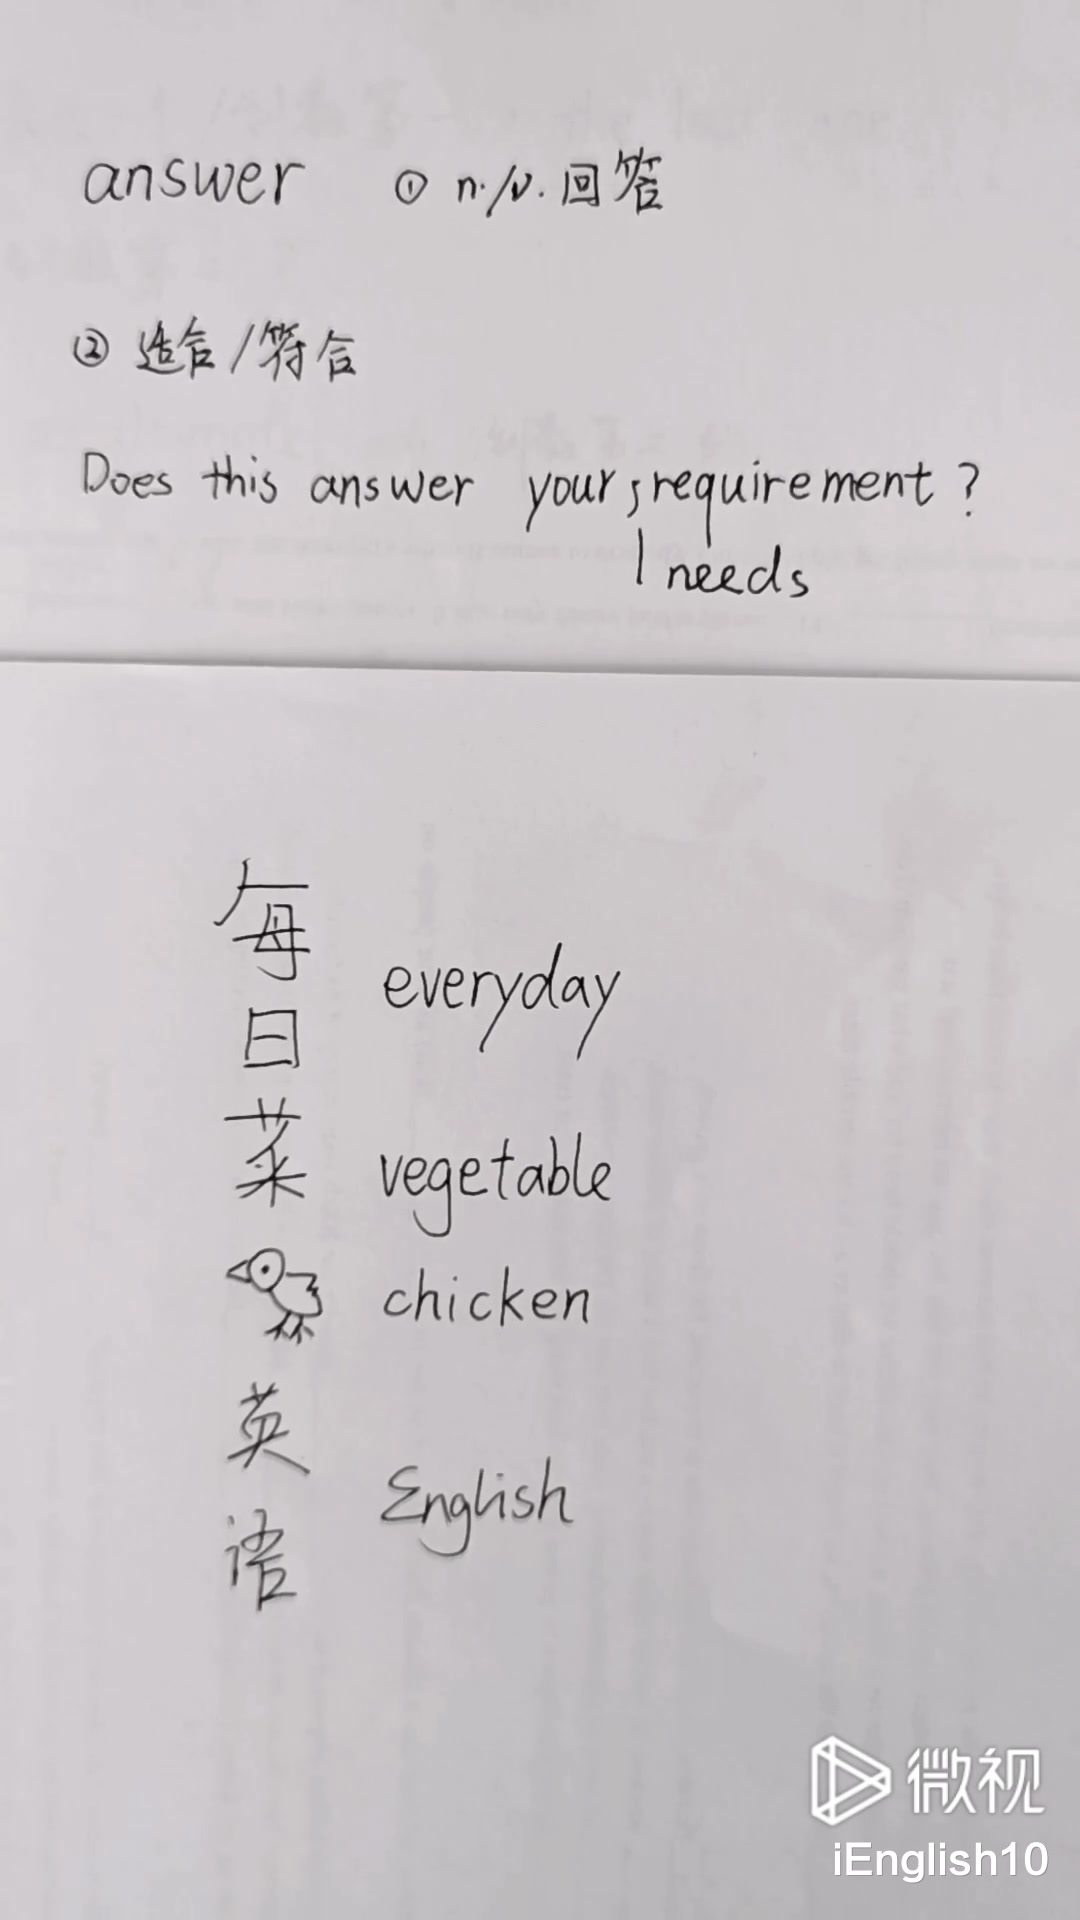 answer ① n./v. 回答
② 适合/符合
Does this answer your requirement?
needs
每日 everyday
菜 vegetable
chicken
英语 English
微视
iEnglish10